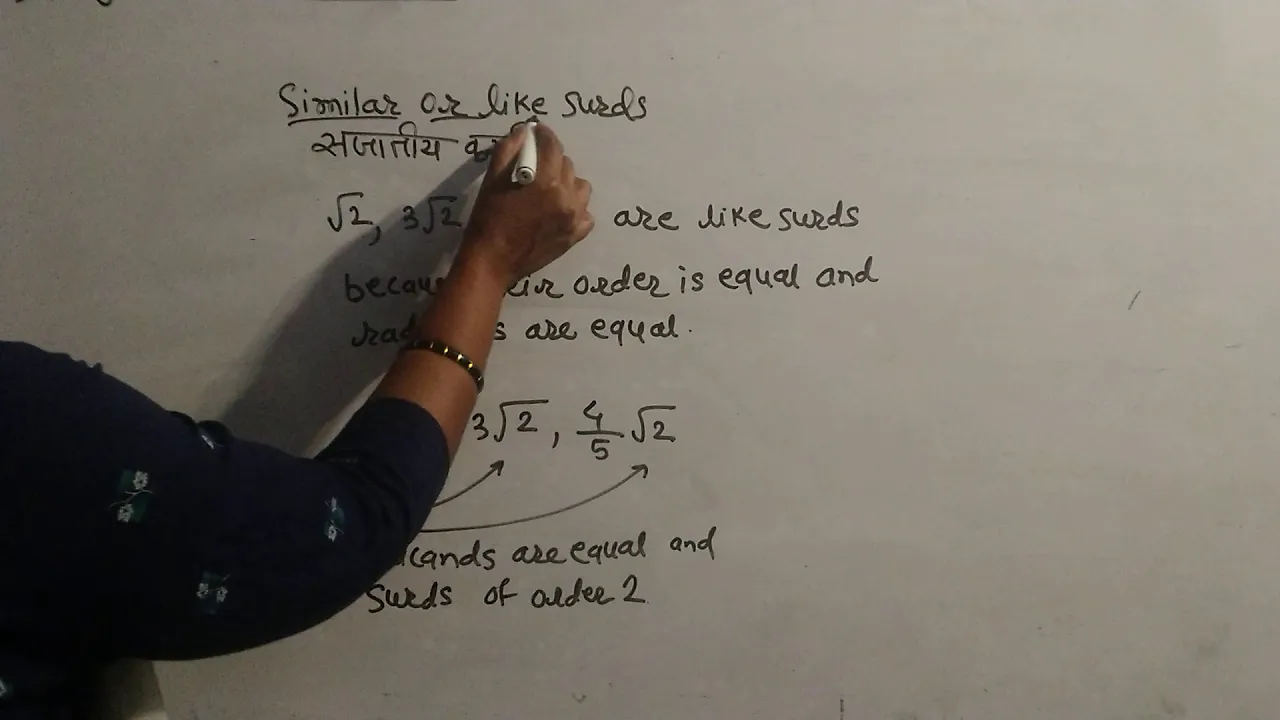 Similar or like surds
सजातीय
√2, 3√2 are like surds
order is equal and
are equal.
3√2, 4/5 √2
are equal and
surds of order 2